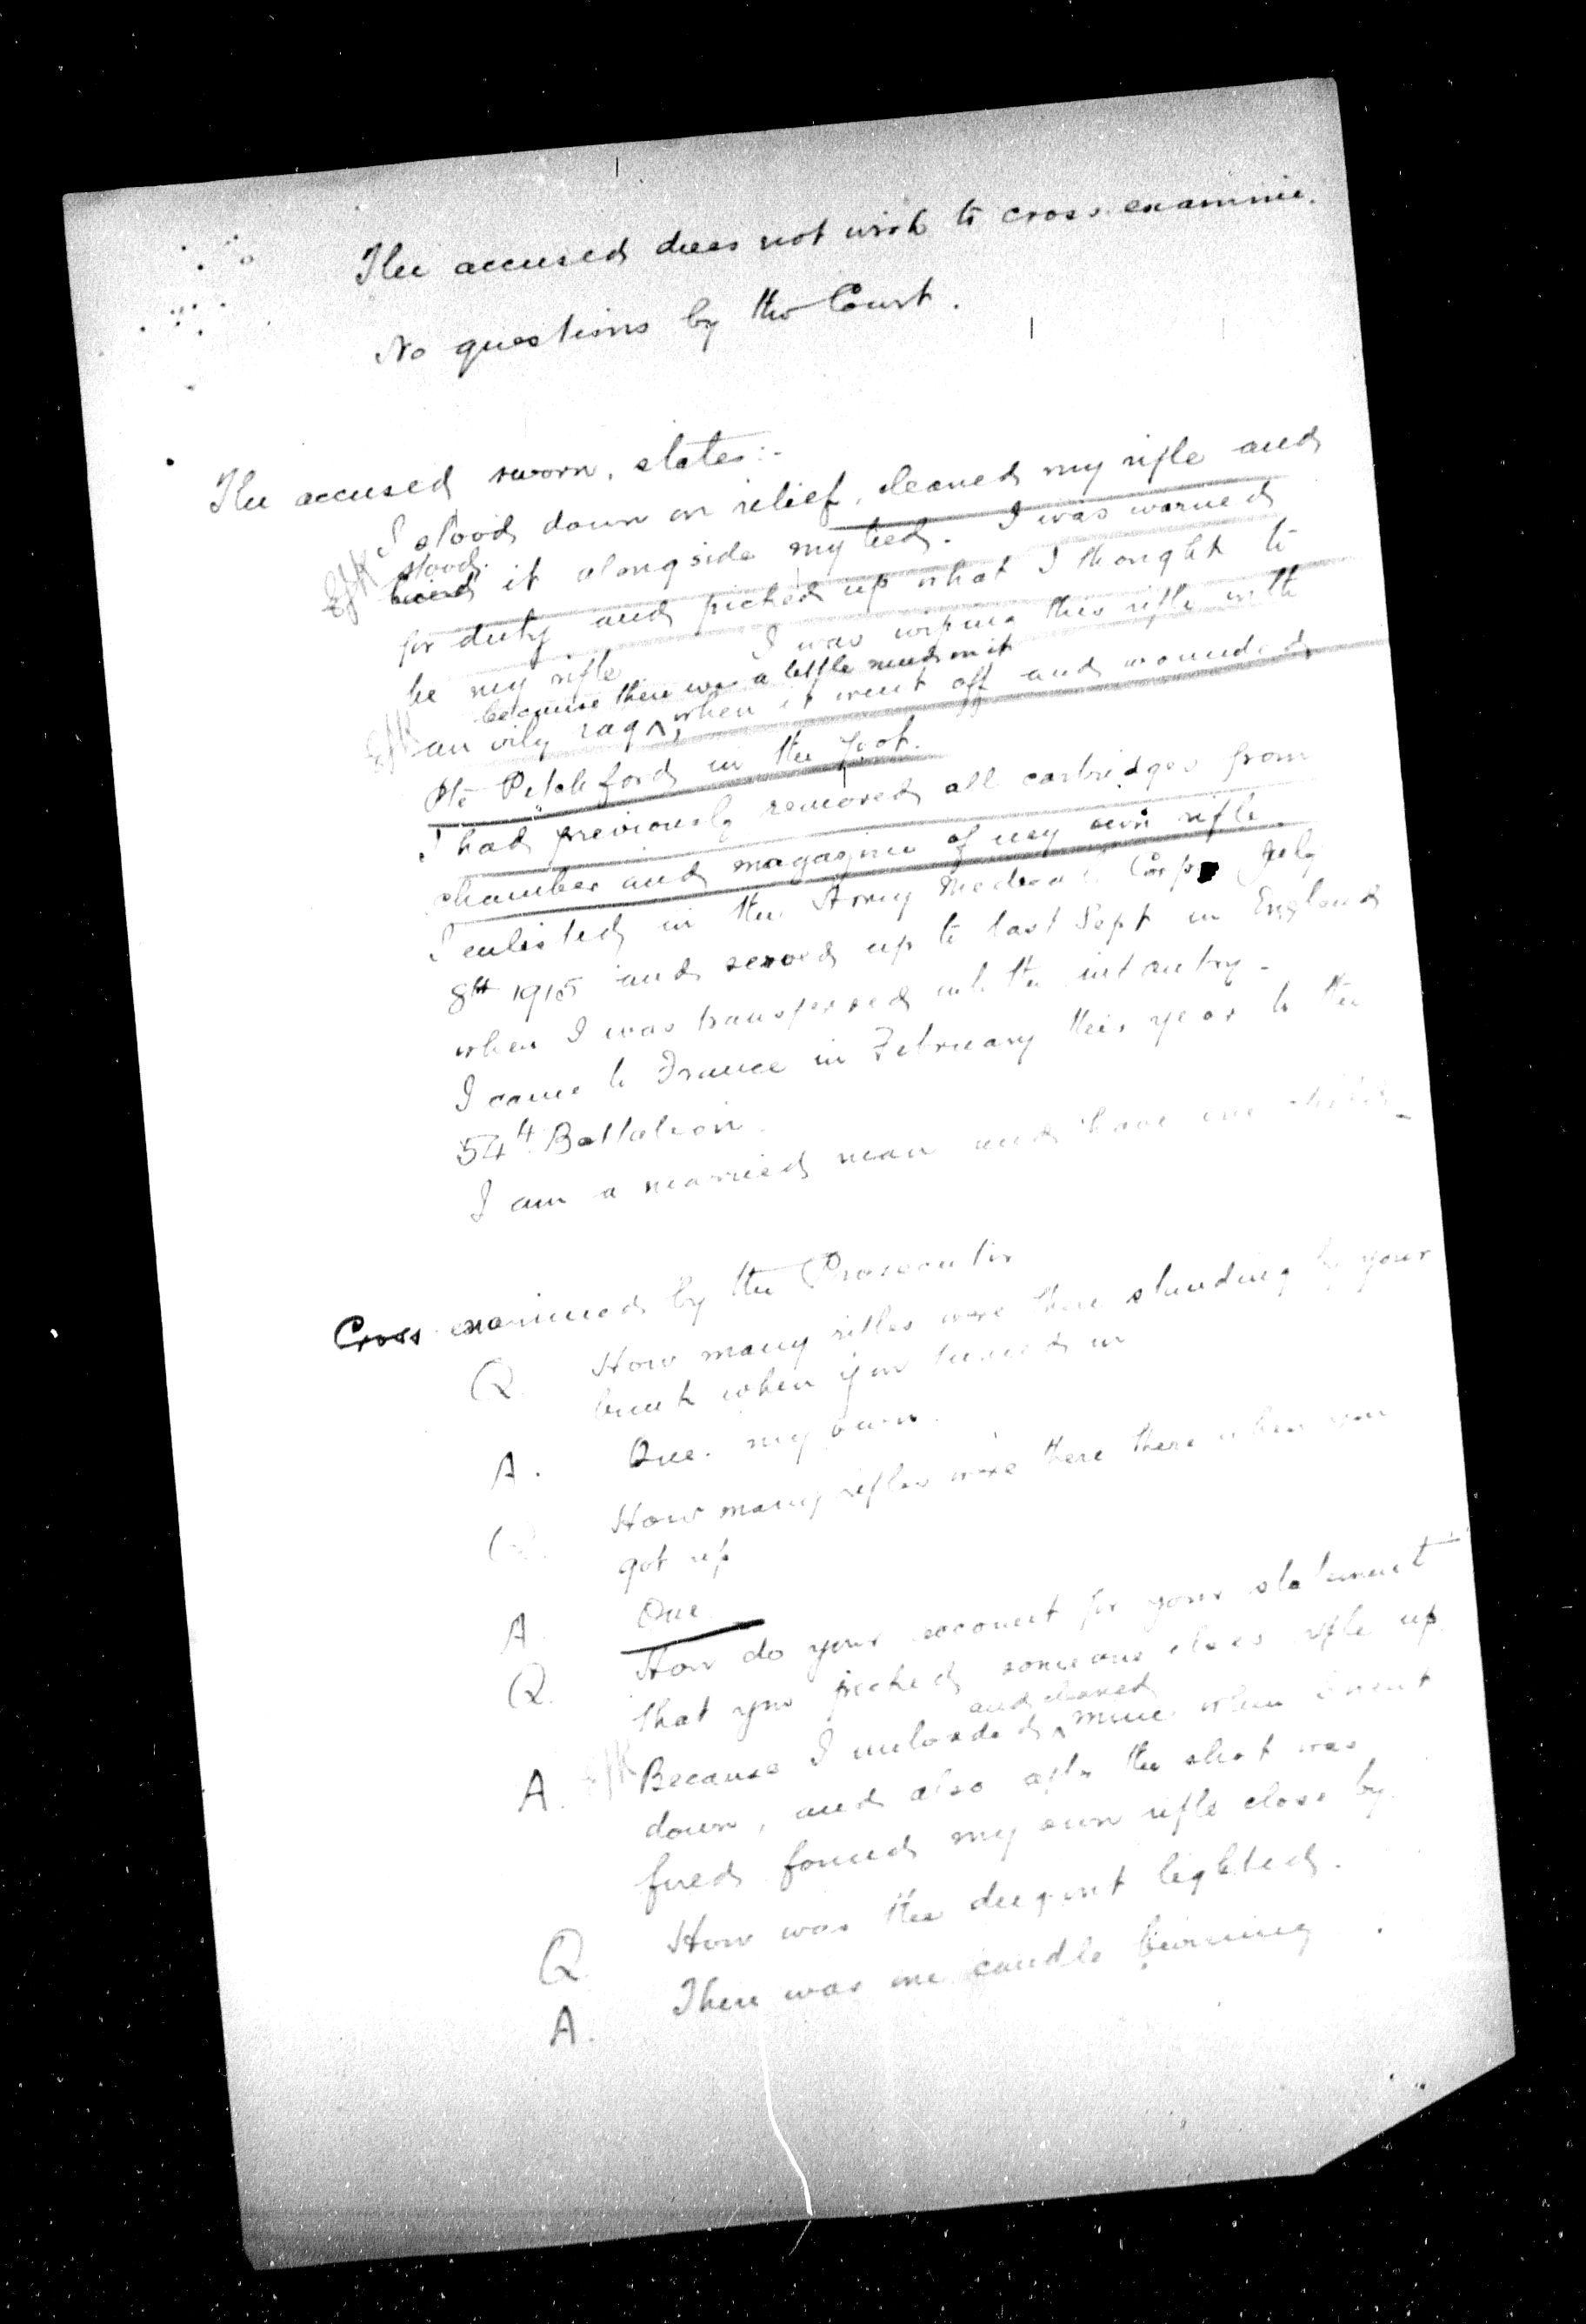 The accused does not wish to cross-examine.
No questions by the Court.
The accused sworn, states:-
I stood down on relief, cleaned my rifle and
stood
it alongside my bed. I was warned
for duty and picked up what I thought to
be my rifle I was wiping this rifle with
because there was a little mud on it
an oily rag, when it went off and wounded
Pte Pitchford in the foot.
I had previously removed all cartridges from
chamber and magazine of my own rifle.
I enlisted in the Army Medical Corps July
8th 1915 and served up to last Sept in England
when I was transferred into the infantry.
I came to France in February this year to the
54th Battalion.
I am a married man and have one child
Cross-examined by the Prosecutor
Q. How many rifles were there standing by your
bunk when you turned in
A. One. my own.
Q. How many rifles were there there when you
got up
A. One.
Q. How do your account for your statement
that you picked someone elses rifle up
and cleaned
A. Because I unloaded mine when I went
down, and also after the shot was
fired found my own rifle close by.
Q How was the dugout lighted.
A. There was one candle burning